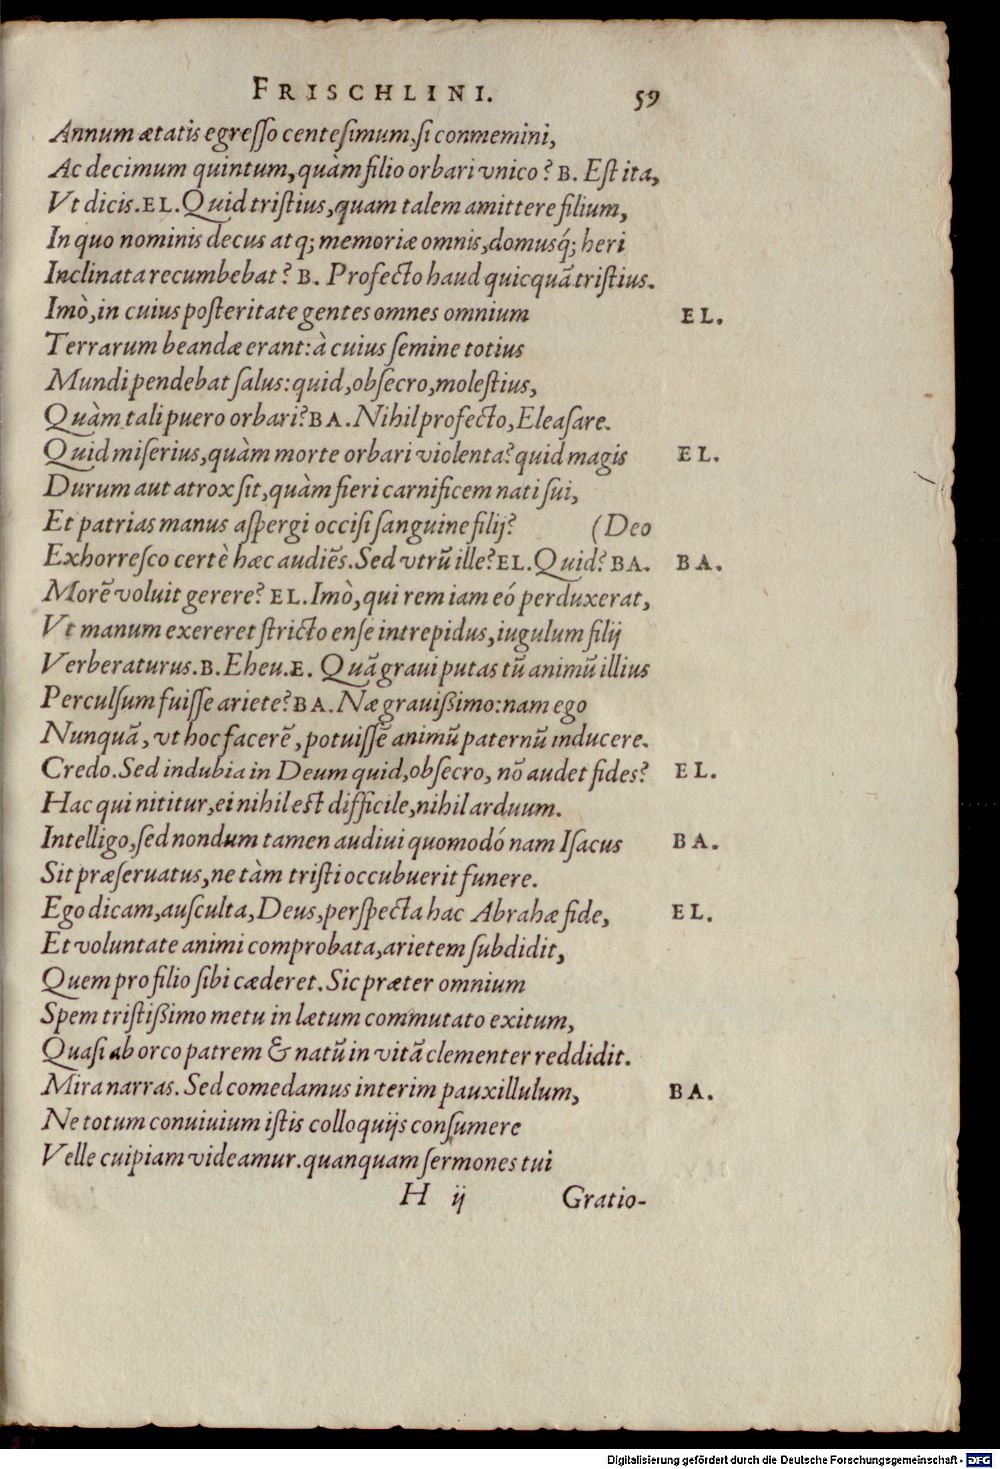 FRISCHLINI. 59
Annum ætatis egreſſo centeſimum, ſi conmemini,
Ac decimum quintum, quàm filio orbari vnico? B. Eſt ita,
Vt dicis. EL. Quid triſtius, quam talem amittere filium,
In quo nominis decus atq; memoriæ omnis, domusq́; heri
Inclinata recumbebat? B. Profecto haud quicquã triſtius.
Imò, in cuius poſteritate gentes omnes omnium EL.
Terrarum beandæ erant: à cuius ſemine totius
Mundi pendebat ſalus: quid, obſecro, moleſtius,
Quàm tali puero orbari? BA. Nihil profecto, Eleaſare.
Quid miſerius, quàm morte orbari violenta? quid magis EL.
Durum aut atrox ſit, quàm fieri carnificem nati ſui,
Et patrias manus aſpergi occiſi ſanguine filij? (Deo
Exhorreſco certè hæc audiẽs. Sed vtrũ ille? EL. Quid? BA. BA.
Morẽ voluit gerere? EL. Imò, qui rem iam eó perduxerat,
Vt manum exereret ſtricto enſe intrepidus, iugulum filij
Verberaturus. B. Eheu. E. Quã graui putas tũ animũ illius
Perculſum fuiſſe ariete? BA. Næ grauißimo: nam ego
Nunquã, vt hoc facerẽ, potuiſſẽ animũ paternũ inducere.
Credo. Sed indubia in Deum quid, obſecro, nõ audet fides? EL.
Hac qui nititur, ei nihil eſt difficile, nihil arduum.
Intelligo, ſed nondum tamen audiui quomodó nam Iſacus BA.
Sit præſeruatus, ne tàm triſti occubuerit funere.
Ego dicam, auſculta, Deus, perſpecta hac Abrahæ fide, EL.
Et voluntate animi comprobata, arietem ſubdidit,
Quem pro filio ſibi cæderet. Sic præter omnium
Spem triſtißimo metu in lætum commutato exitum,
Quaſi ab orco patrem & natũ in vitã clementer reddidit.
Mira narras. Sed comedamus interim pauxillulum, BA.
Ne totum conuiuium iſtis colloquijs conſumere
Velle cuipiam videamur. quanquam ſermones tui
H ij Gratio-
Digitalisierung gefördert durch die Deutsche Forschungsgemeinschaft - DFG